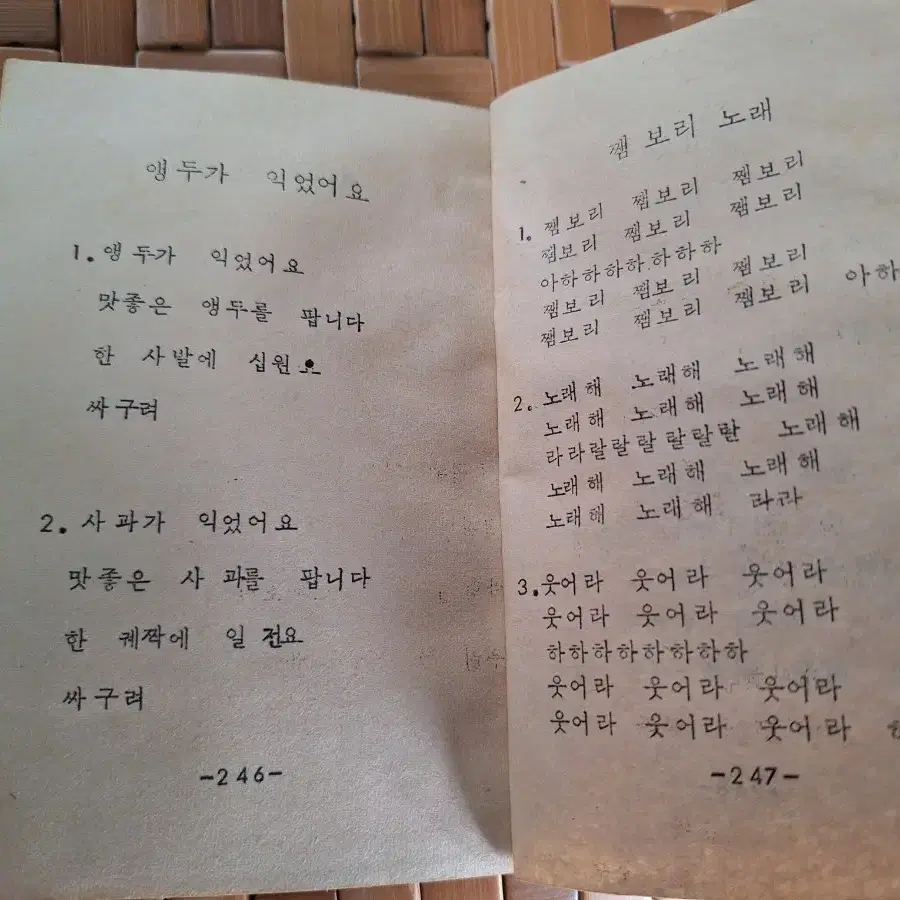 앵두가 익었어요
1. 앵두가 익었어요
맛좋은 앵두를 팝니다
한 사발에 십원
싸구려
2. 사과가 익었어요
맛좋은 사과를 팝니다
한 궤짝에 일 전요
싸구려
-246-
쨈보리 노래
1. 쨈보리 쨈보리 쨈보리
쨈보리 쨈보리 쨈보리
아하하하하하하하
쨈보리 쨈보리 쨈보리
쨈보리 쨈보리 쨈보리 아하
2. 노래해 노래해 노래해
노래해 노래해 노래해
라라랄랄랄랄랄 노래해
노래해 노래해 노래해
노래해 노래해 라라
3. 웃어라 웃어라 웃어라
웃어라 웃어라 웃어라
하하하하하하하하
웃어라 웃어라 웃어라
웃어라 웃어라 웃어라
-247-